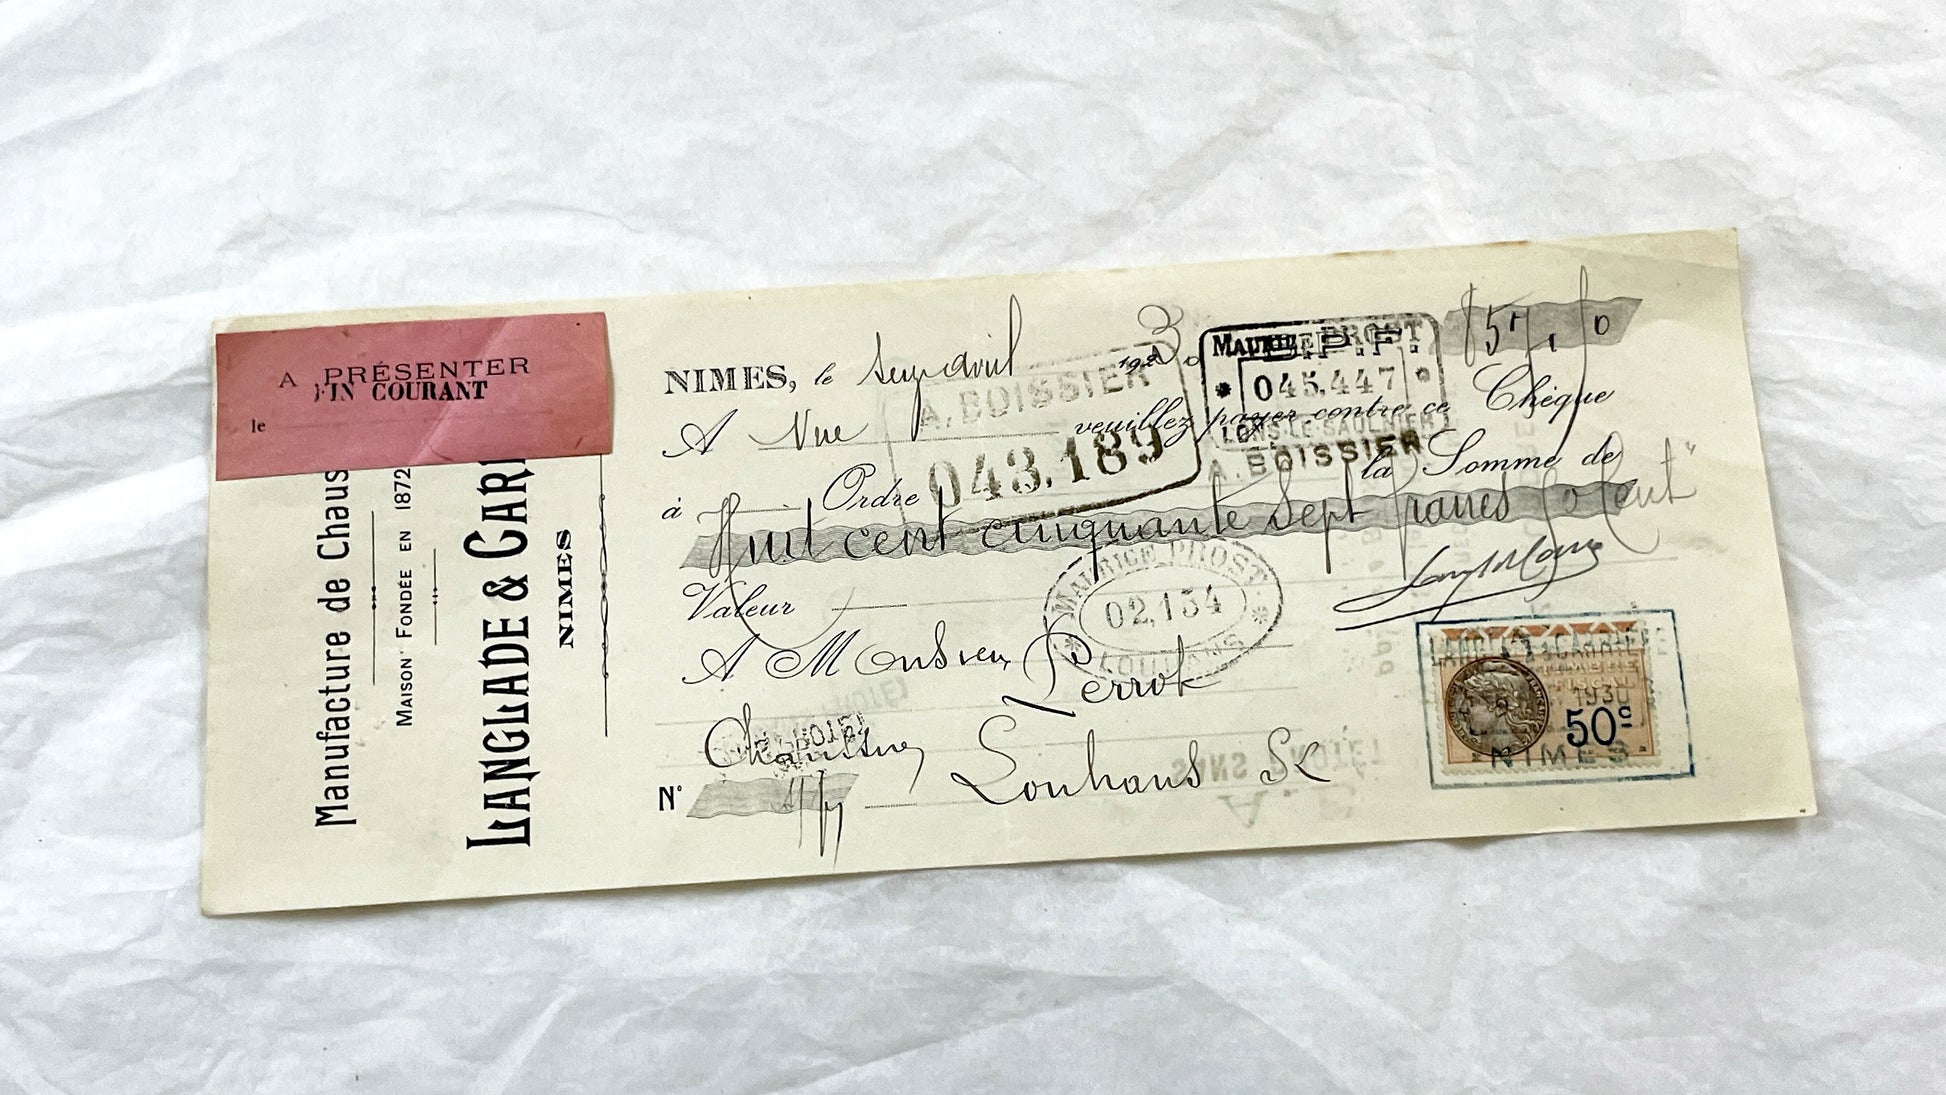 A PRÉSENTER
FIN COURANT
le
Manufacture de Chaus
MAISON FONDÉE EN 1872
LANGLADE & CARR
NIMES
NIMES, le Sept avril 1930
857,50
MAURICE PROST
B.P.F.
045.447
LONS-LE-SAULNIER
A. BOISSIER
A. BOISSIER
043.189
A Vue veuillez payer contre ce Chèque
à Ordre la Somme de
Huit cent cinquante Sept francs 50 Cent
Valeur
MAURICE PROST
02,154
LOUHANS
A Monsieur Perrot
Louhans S&L
N°
LANGLADE & CARRIÈRE
1930
50c
NIMES